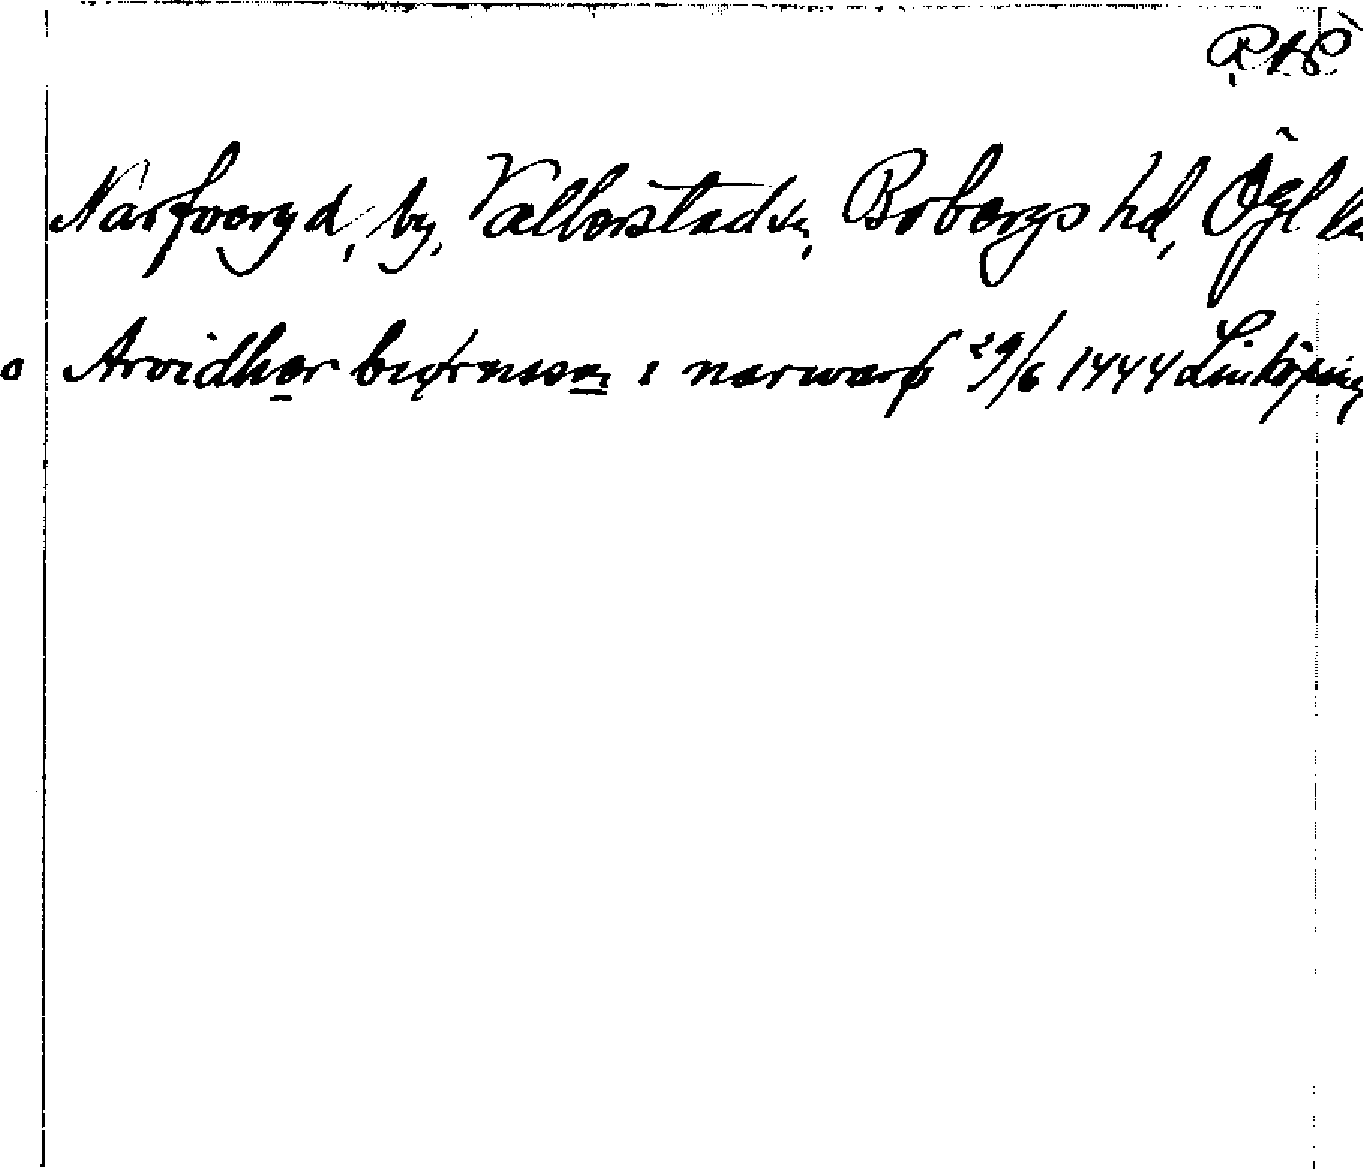 RAP
Narfveryd, by, Vallerstad sn, Bobergs hd, Ögl
o Arvidher biørnsson i narwarp 29/6 1444 Linköping